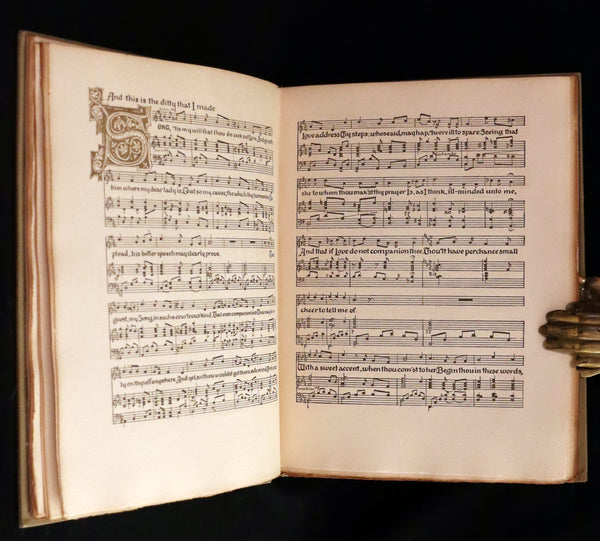 And this is the ditty that I made
SONG, 'tis my will that thou do seek out Love, And go with
him where my dear lady is; That so my cause, the which thy harmonies
plead, his better speech may clearly prove. Thou
goest, my Song, in such a courteous kind, That even companionless Thou may'st
rely on thyself anywhere. And yet, an thou wouldst get thee a safe mind, First
Love address Thy steps; whose aid, mayhap, 'twere ill to spare: Seeing that
she to whom thou mak'st thy prayer Is, as I think, ill-minded unto me,
And that if Love do not companion thee, Thou'lt have perchance small
cheer to tell me of.
With a sweet accent, when thou com'st to her, Begin thou in these words,